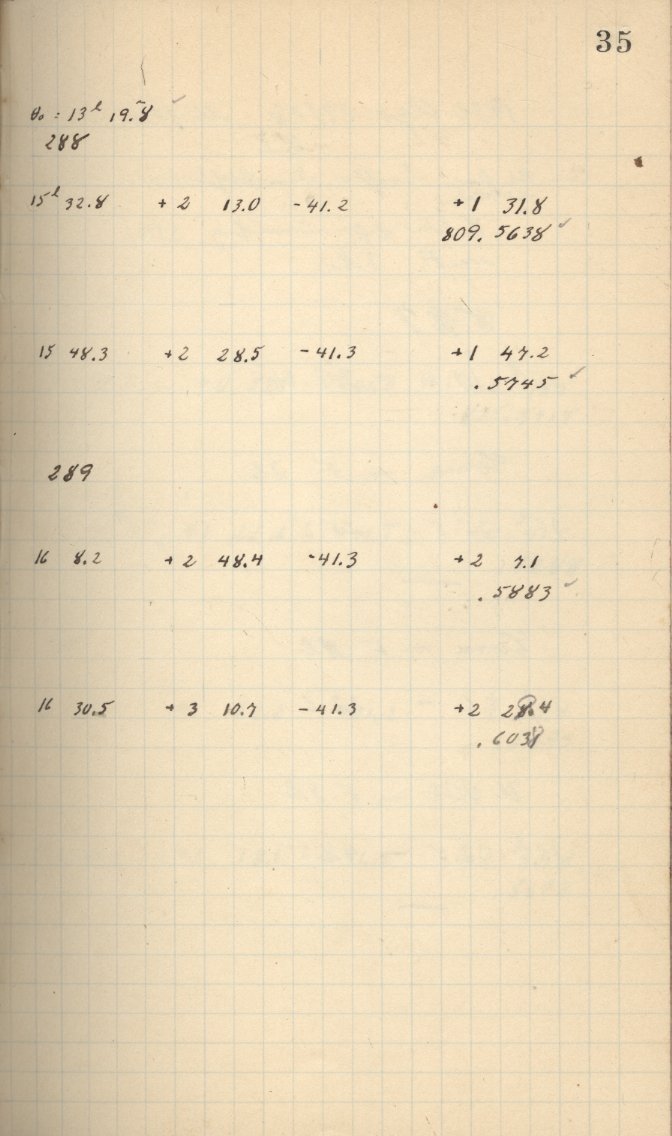 35
θ₀ = 13ʰ 19.ᵐ8 ✓
288
15ʰ 32.8 + 2 13.0 - 41.2 + 1 31.8
809.5638 ✓
15 48.3 + 2 28.5 - 41.3 + 1 47.2
.5745 ✓
289
16 8.2 + 2 48.4 - 41.3 + 2 7.1
.5883 ✓
16 30.5 + 3 10.7 - 41.3 + 2 .4
.603